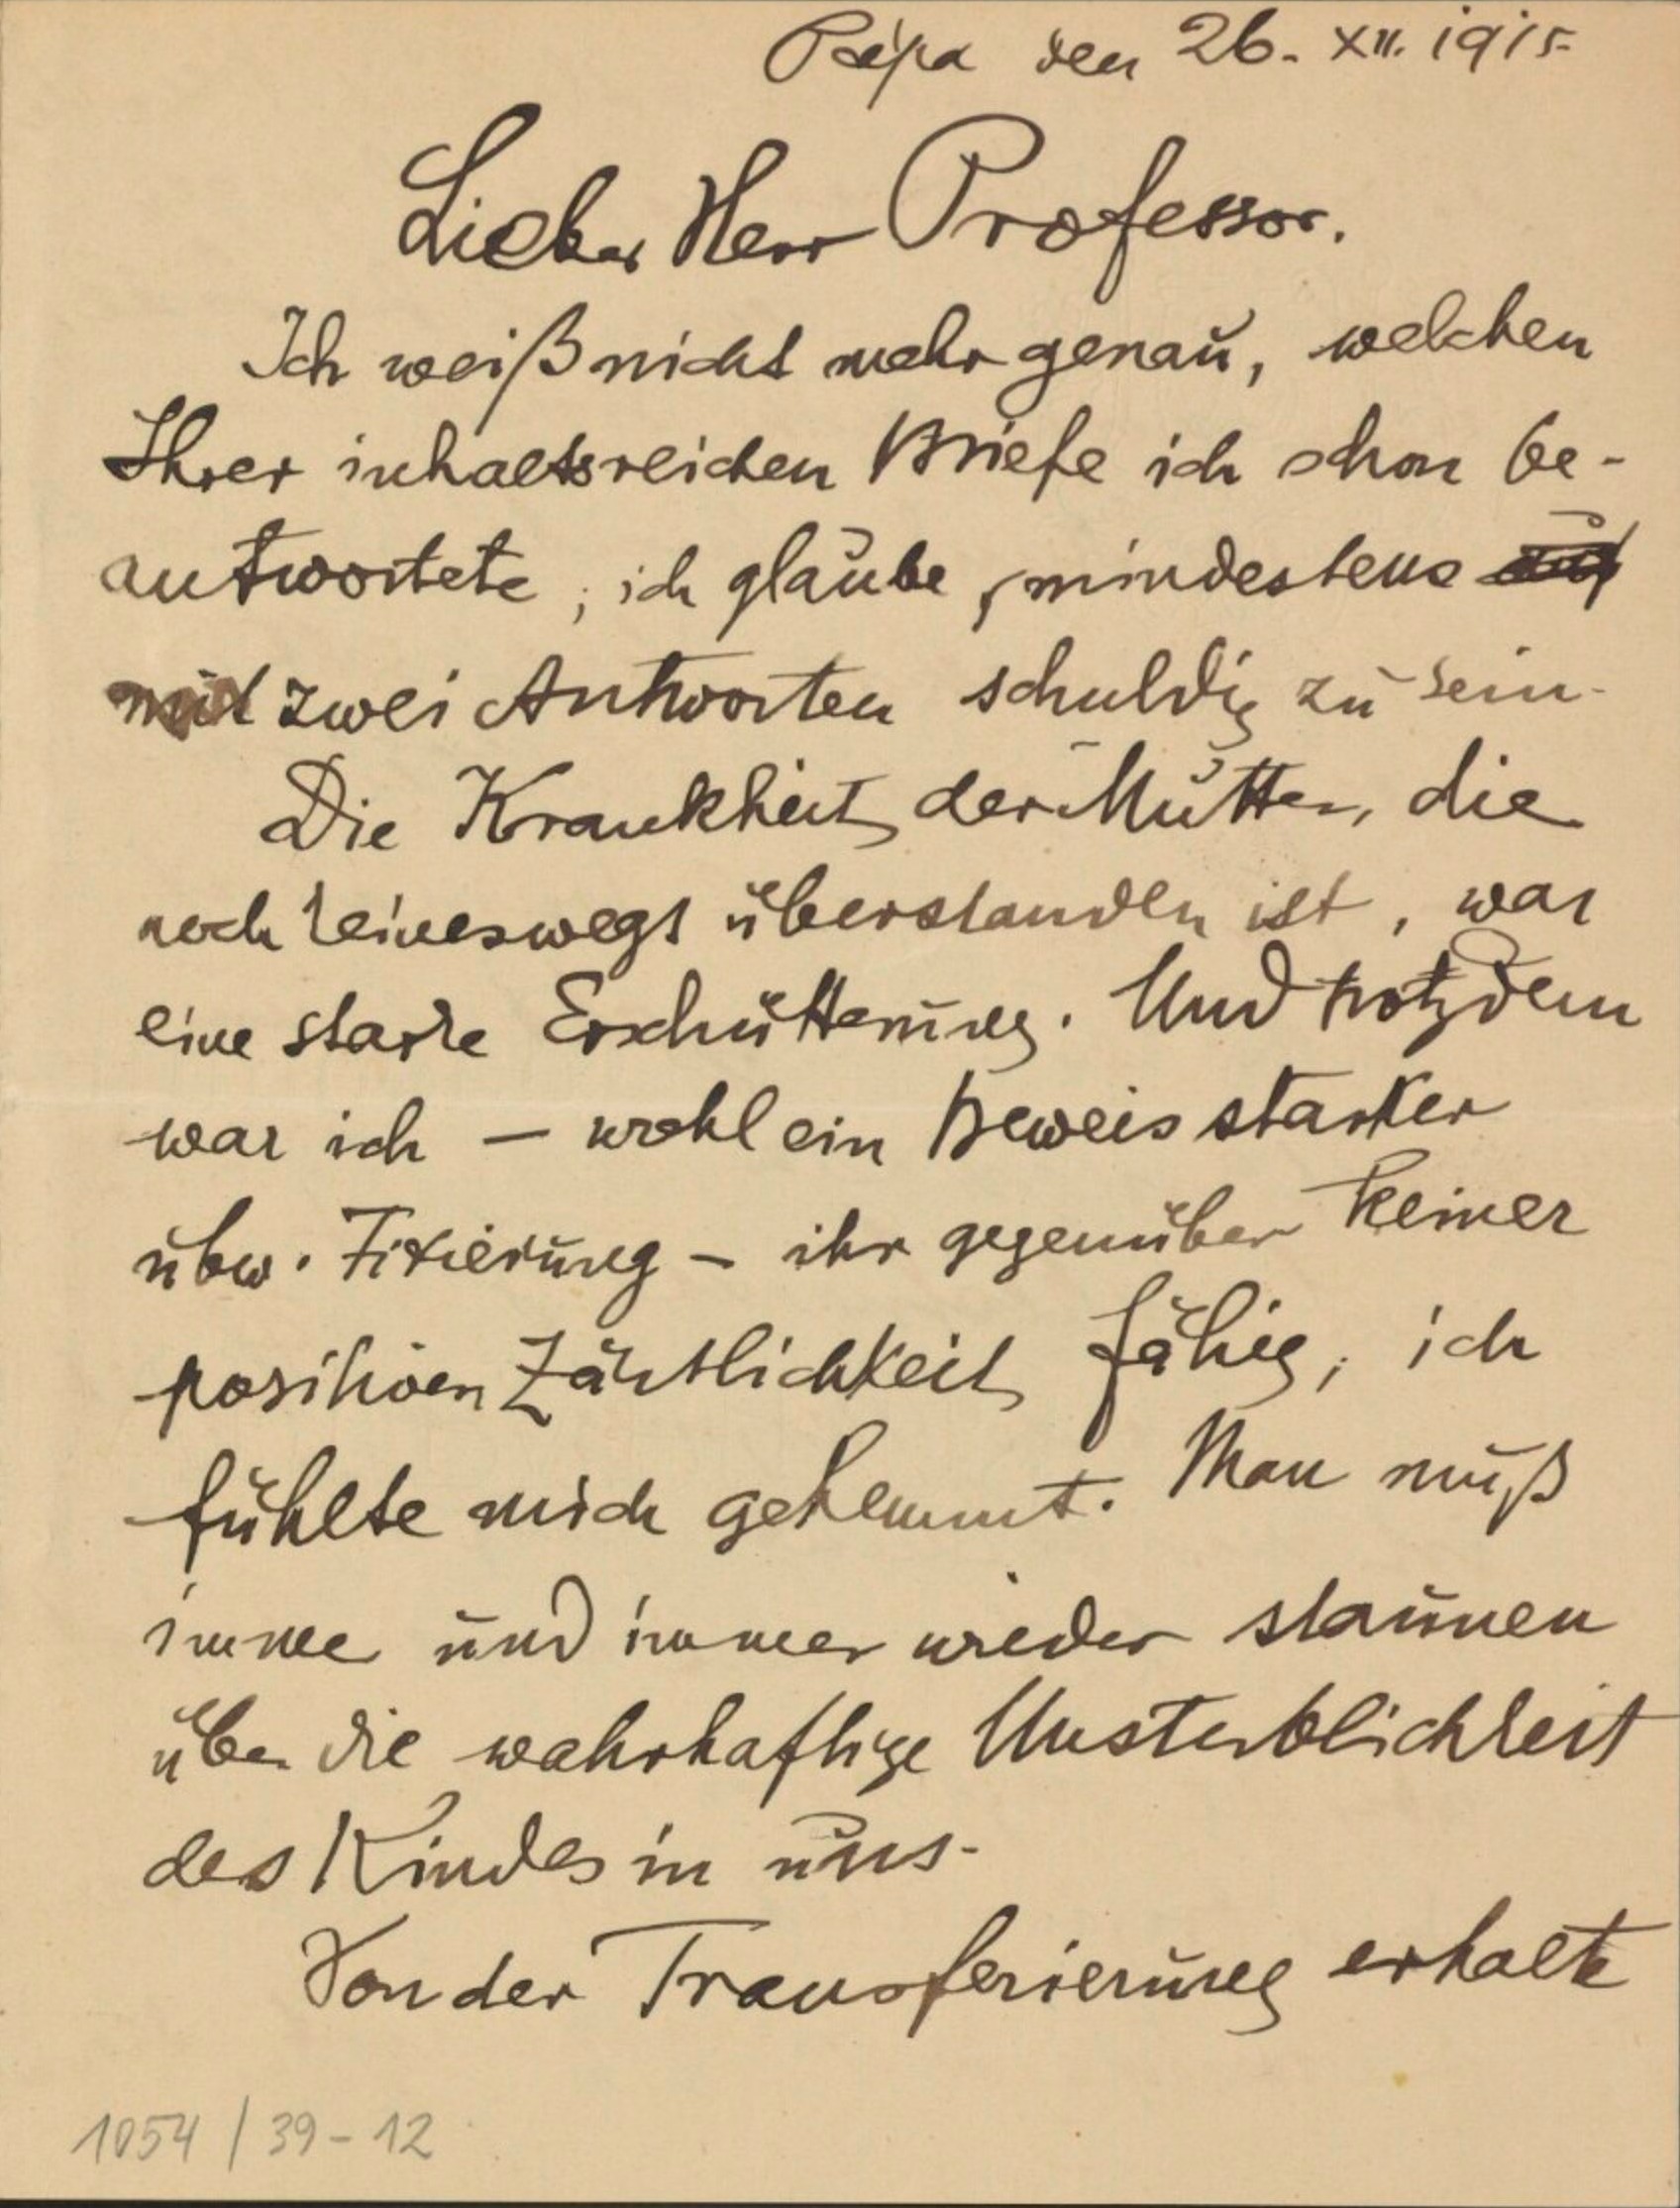 Pápa den 26. XII. 1915.
Lieber Herr Professor.
Ich weiß nicht mehr genau, welchen
Ihrer inhaltsreichen Briefe ich schon be-
antwortete; ich glaube, mindestens
mit zwei Antworten schuldig zu sein.
Die Krankheit der Mutter, die
noch keineswegs überstanden ist, war
eine starke Erschütterung. Und trotzdem
war ich – wohl ein Beweis starker
übw. Fixierung – ihr gegenüber keiner
positiven Zärtlichkeit fähig, ich
fühlte mich gehemmt. Man muß
immer und immer wieder staunen
über die wahrhaftige Unsterblichkeit
des Kindes in uns.
Von der Transferierung erhalte
1054 / 39-12